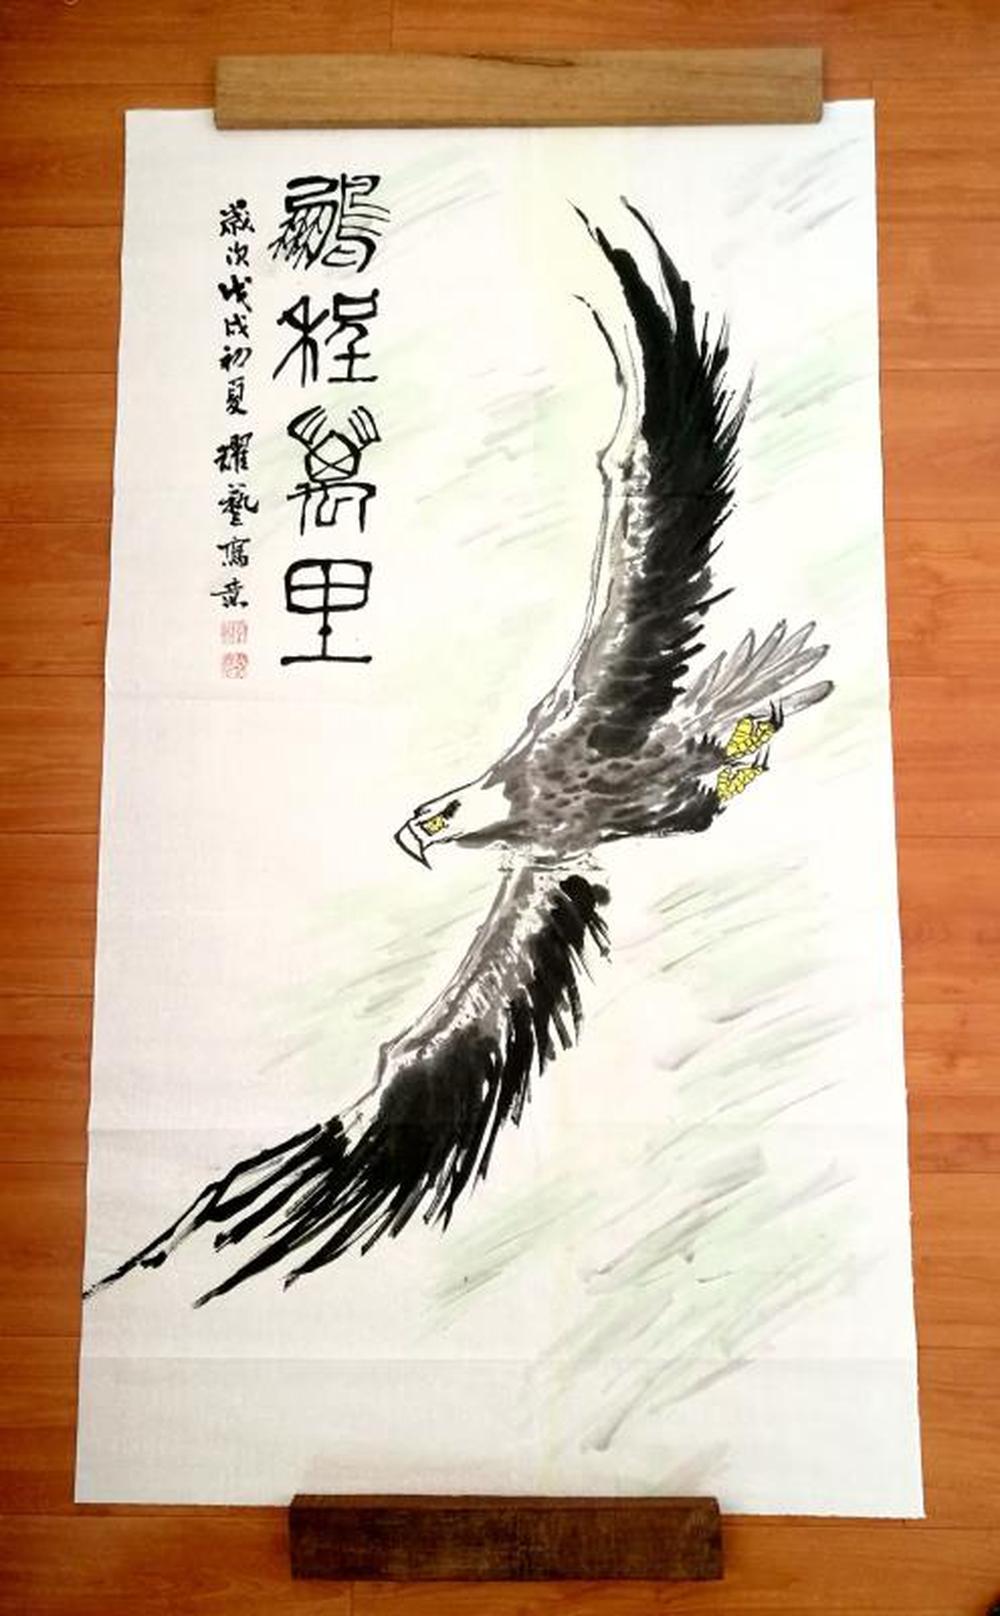 鵬程萬里
歲次戊戌初夏 耀藝寫意